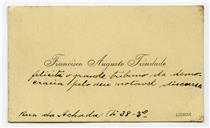 Francisco Augusto Trindade
felicita o grande tribuno da demo-
cracia pelo seu notavel discurso
LISBOA
Rua da Achada, 38-3º